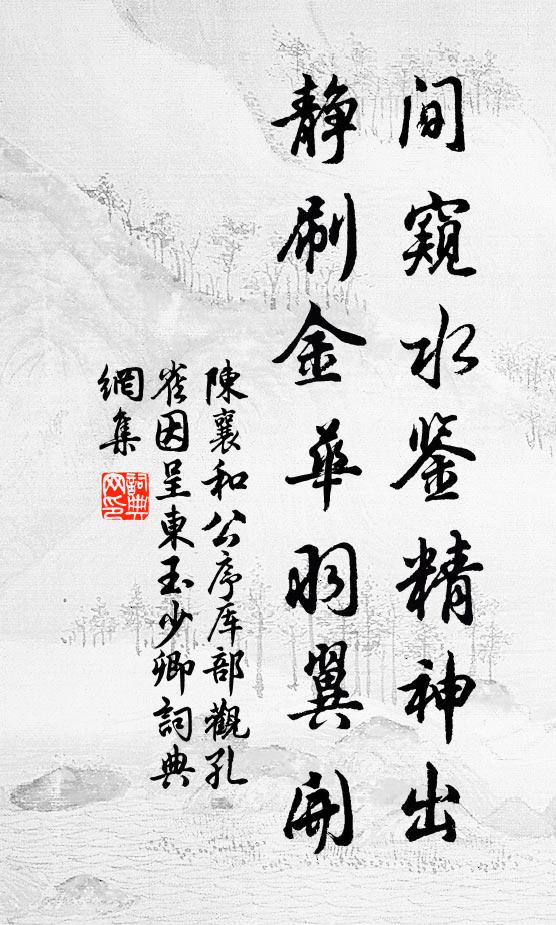 间窥水鉴精神出
静刷金华羽翼开
陳襄和公序库部觀孔
雀因呈東玉少卿詞典
網集
詞典网印